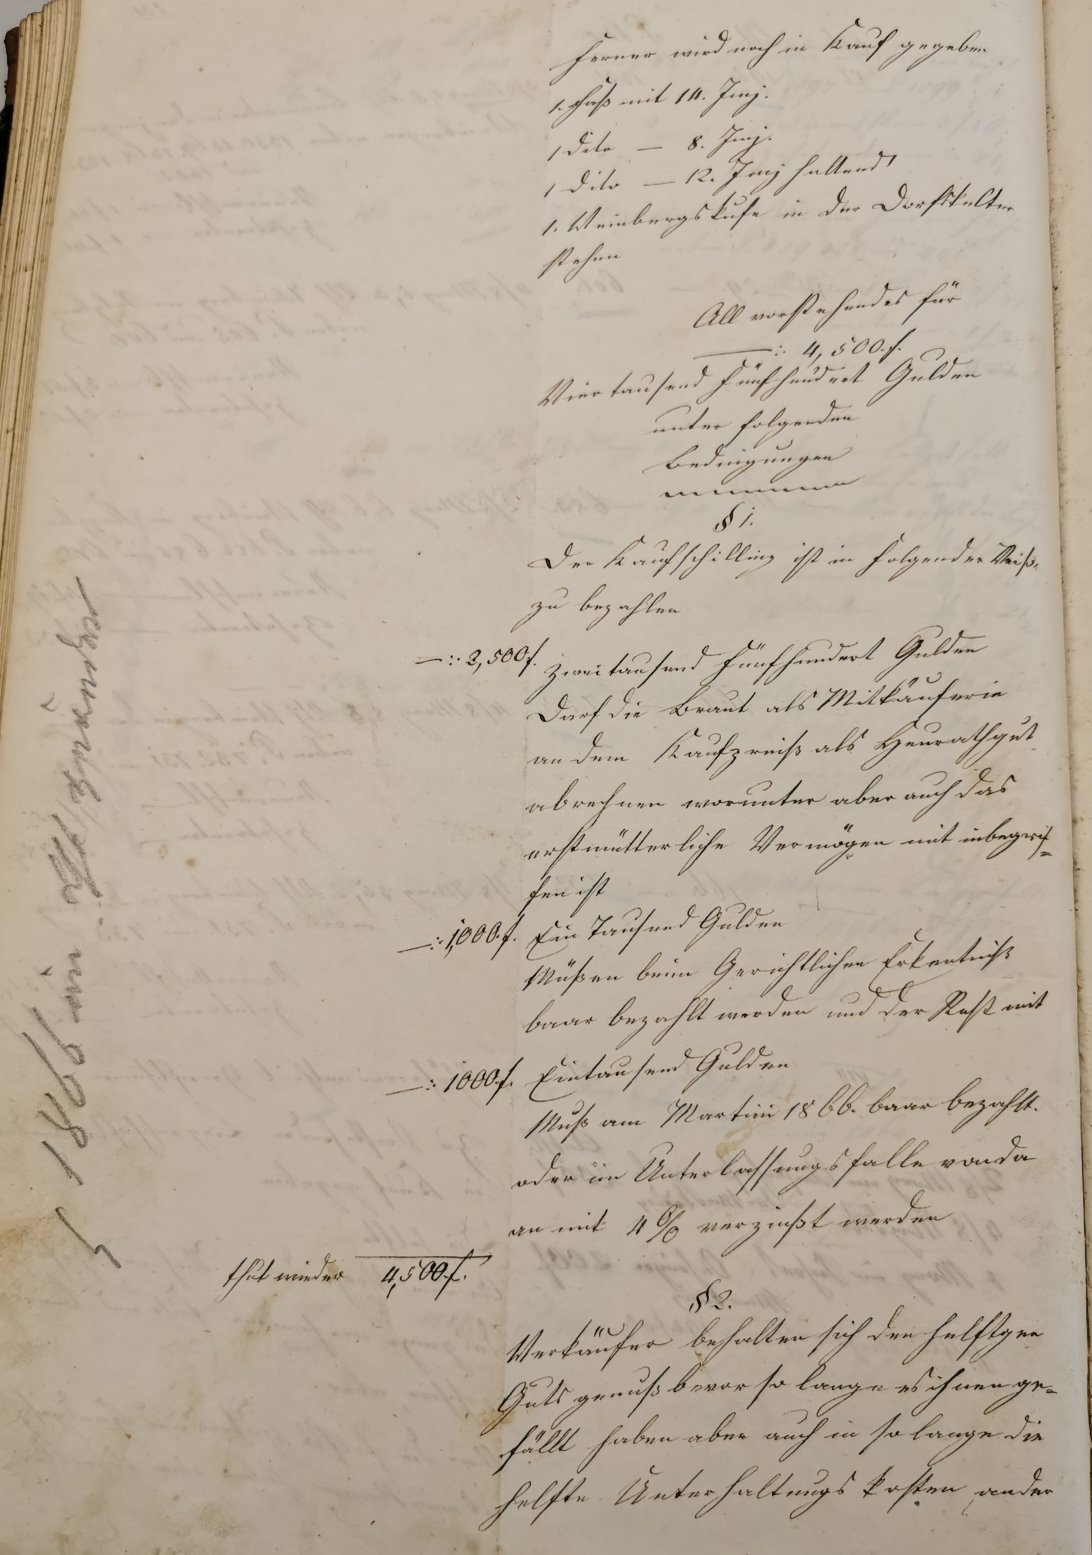 Ferner wird noch in Kauf gegeben
1. Faß mit 14. Jmj.
1 Dito — 8. Jmj.
1 Dito — 12. Jmj haltend
1. Weinbergskufe in der Dorfkelter
stehen
All vorstehendes für
—: 4,500.f.
Viertausend Fünfhundert Gulden
unter folgenden
Bedingungen
§ 1.
Der Kaufschilling ist in folgender Weiß
zu bezahlen
—: 2,500f. Zweitausend Fünfhundert Gulden
Darf die Braut als Mitkäuferin
an dem Kaufpreiß als Heurathgut
abrechnen worunter aber auch das
erstmütterliche Vermögen mit inbegrif-
fen ist
—: 1,000.f. Ein Tausend Gulden
Müßen beim Gerichtlichen Erkentniß
baar bezahlt werden und der Rest mit
—: 1000f. Eintausend Gulden
Muß am Martini 1866. baar bezahlt.
oder im Unterlassungsfalle von da
an mit 4 % verzinßt werden
thut wieder 4,500.f.
§ 2.
Verkäufer behalten sich den helftgen
Guts genuß bevor so lange es ihnen ge-
fällt haben aber auch in so lange die
helfte Unterhaltungs kosten an der
1866 in